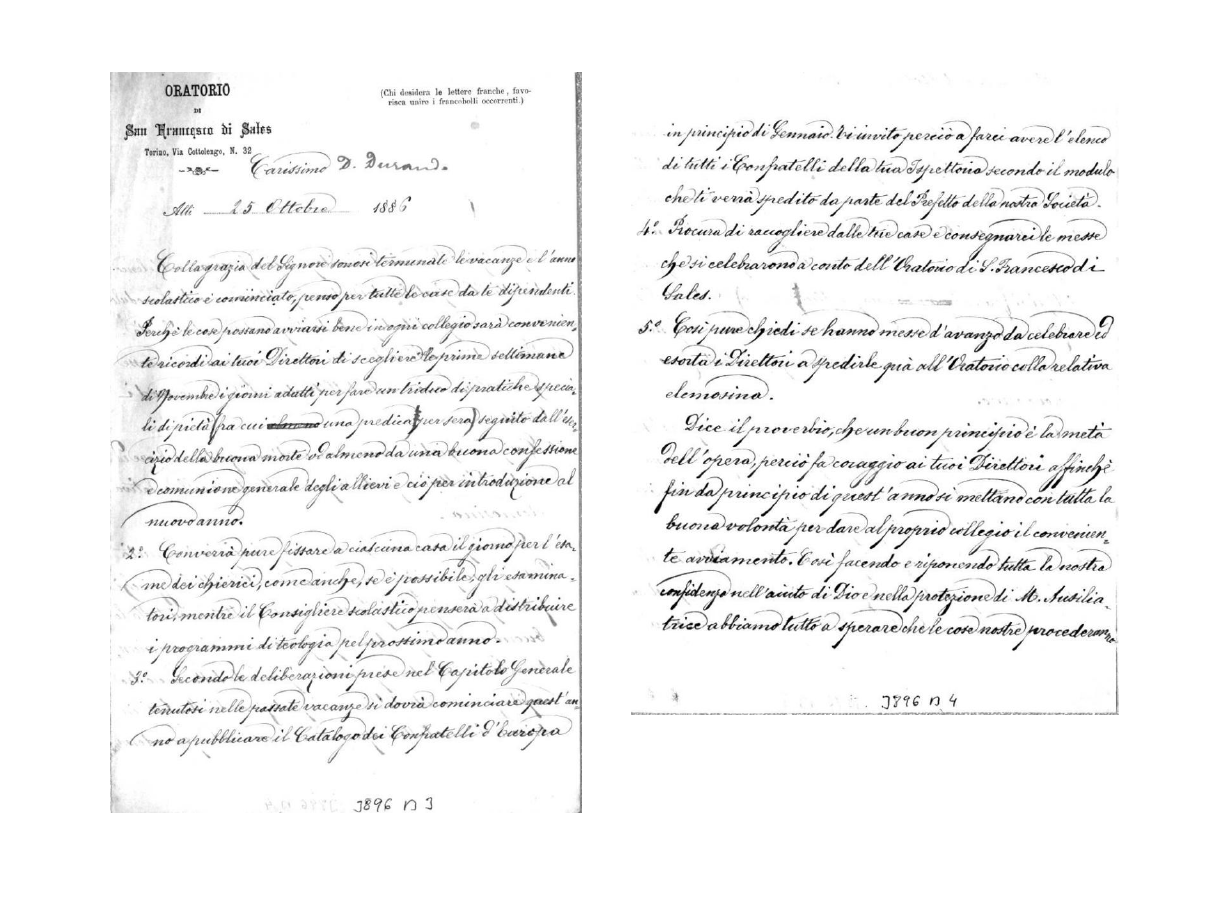 ORATORIO
DI
San Francesco di Sales
Torino, Via Cottolengo, N. 32
(Chi desidera le lettere franche, favo-
risca unire i francobolli occorrenti.)
Carissimo D. Durand.
Atti 25 Ottobre 1886
Colla grazia del Signore sonosi terminate le vacanze e l'anno
scolastico è cominciato, penso per tutte le case da te dipendenti.
Perchè le cose possano avviarsi bene in ogni collegio sarà convenien-
te ricordi ai tuoi Direttori di scegliere le prime settimane
di Novembre i giorni adatti per fare un triduo di pratiche specia-
li di pietà (fra cui almeno una predica per sera) seguito dall'eser-
cizio della buona morte od almeno da una buona confessione
e comunione generale degli allievi e ciò per introduzione al
nuovo anno.
2.° Converrà pure fissare a ciascuna casa il giorno per l'esa-
me dei chierici, come anche, se è possibile, gli esamina-
tori, mentre il Consigliere scolastico penserà a distribuire
i programmi di teologia pel prossimo anno.
3.° Secondo le deliberazioni prese nel Capitolo Generale
tenutosi nelle passate vacanze si dovrà cominciare quest'an-
no a pubblicare il Catalogo dei Confratelli d'Europa
1896 D 3
in principio di Gennaio. Ti invito perciò a farci avere l'elenco
di tutti i Confratelli della tua Ispettoria secondo il modulo
che ti verrà spedito da parte del Prefetto della nostra Società.
4.° Procura di raccogliere dalle tue case e consegnarci le messe
che si celebrarono a conto dell'Oratorio di S. Francesco di
Sales.
5.° Così pure chiedi se hanno messe d'avanzo da celebrare ed
esorta i Direttori a spedirle quà all'Oratorio colla relativa
elemosina.
Dice il proverbio, che un buon principio è la metà
dell'opera, perciò fa coraggio ai tuoi Direttori affinchè
fin da principio di quest'anno si mettano con tutta la
buona volontà per dare al proprio collegio il convenien-
te avviamento. Così facendo e riponendo tutta la nostra
confidenza nell'aiuto di Dio e nella protezione di M. Ausilia-
trice abbiamo tutto a sperare che le cose nostre procederanno
1896 D 4